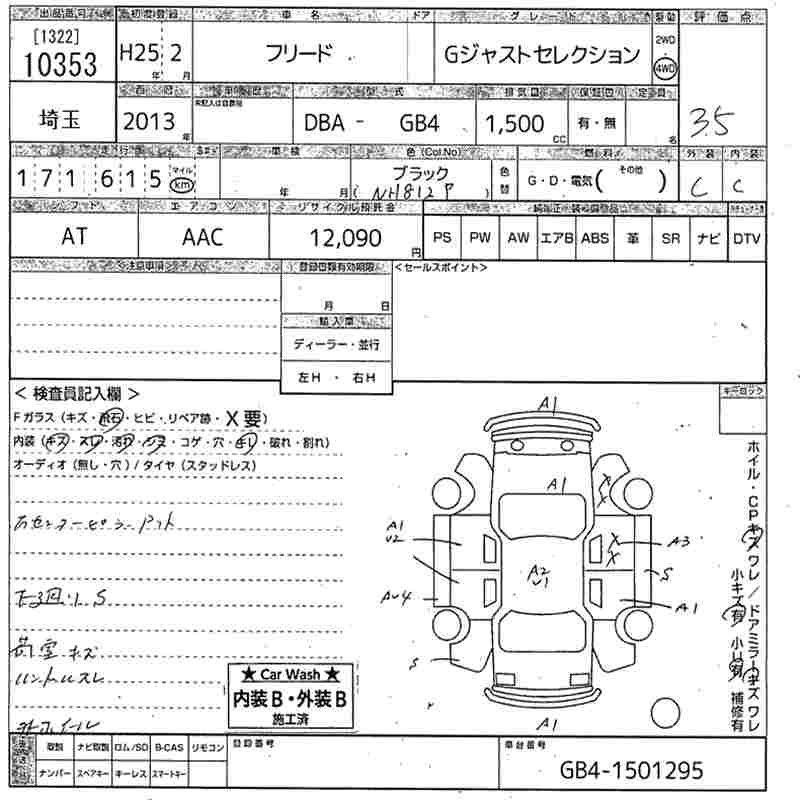 出品番号 初度登録 車名 ドア グレード 駆動 評価点
[1322]
10353 H25年 2月 フリード Gジャストセレクション 2WD 4WD
西暦 車歴 型式 排気量 定員
未記入は自家用
埼玉 2013年 DBA - GB4 1,500cc 有・無 名 3.5
走行 車検 色(Col.No) 燃料 外装 内装
171615 マイル km 年 月 ブラック (NH812P) 色替 G・D・電気(その他) C C
シフト エアコン リサイクル預託金 純正装備品
AT AAC 12,090円 PS PW AW エアB ABS 革 SR ナビ DTV
注意事項 登録書類有効期限 <セールスポイント>
月 日
輸入車
ディーラー・並行
左H・右H
<検査員記入欄> キーロック
Fガラス(キズ・飛石・ヒビ・リペア跡・X要)
内装(キズ・スレ・汚れ・シミ・コゲ・穴・キレ・破れ・割れ)
オーディオ(無し・穴)/タイヤ(スタッドレス)
A1
A1
A1
U2
A3
A2
U1
S
AU4
A1
S
A1
下回り S
荷室キズ
ハンドルスレ
ホイール・CPキズワレ/ドアミラーキズワレ
小キズ有 小U有 補修有
★ Car Wash ★
内装B・外装B
施工済
取説 ナビ取説 ロム/SD B-CAS リモコン 登録番号 車台番号
ナンバー スペアキー キーレス スマートキー GB4-1501295